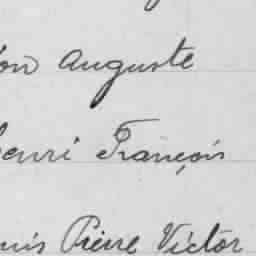 on Auguste
enri François
uis Pierre Victor